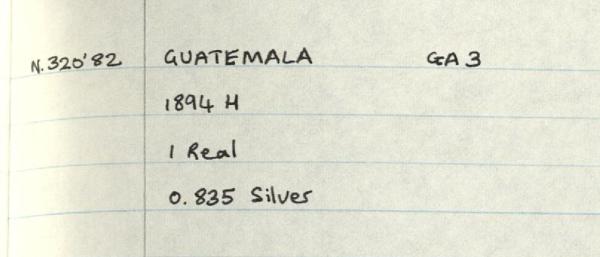 N.320'82 GUATEMALA GA 3
1894 H
1 Real
0.835 Silver